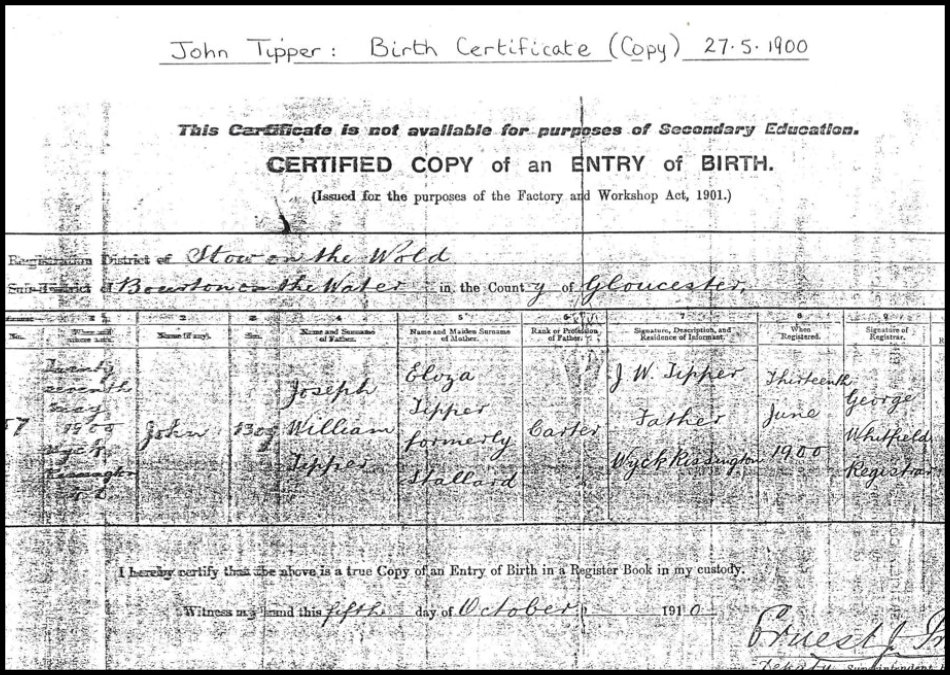 John Tipper: Birth Certificate (Copy) 27.5.1900
This Certificate is not available for purposes of Secondary Education.
CERTIFIED COPY of an ENTRY of BIRTH.
(Issued for the purposes of the Factory and Workshop Act, 1901.)
Registration District of Stow on the Wold
Sub-District of Bourton on the Water in the County of Gloucester.
1 2 3 4 5 6 7 8 9
No. When and where born. Name (if any). Sex. Name and Surname of Father. Name and Maiden Surname of Mother. Rank or Profession of Father. Signature, Description, and Residence of Informant. When Registered. Signature of Registrar.
Twenty seventh May 1900 Wyck Rissington
John
Boy
Joseph William Tipper
Eloza Tipper formerly Stallard
Carter
J W Tipper Father Wyck Rissington
Thirteenth June 1900
George Whitfield Registrar
I hereby certify that the above is a true Copy of an Entry of Birth in a Register Book in my custody.
Witness my hand this fifth day of October 1910
Ernest J
Deputy Superintendent